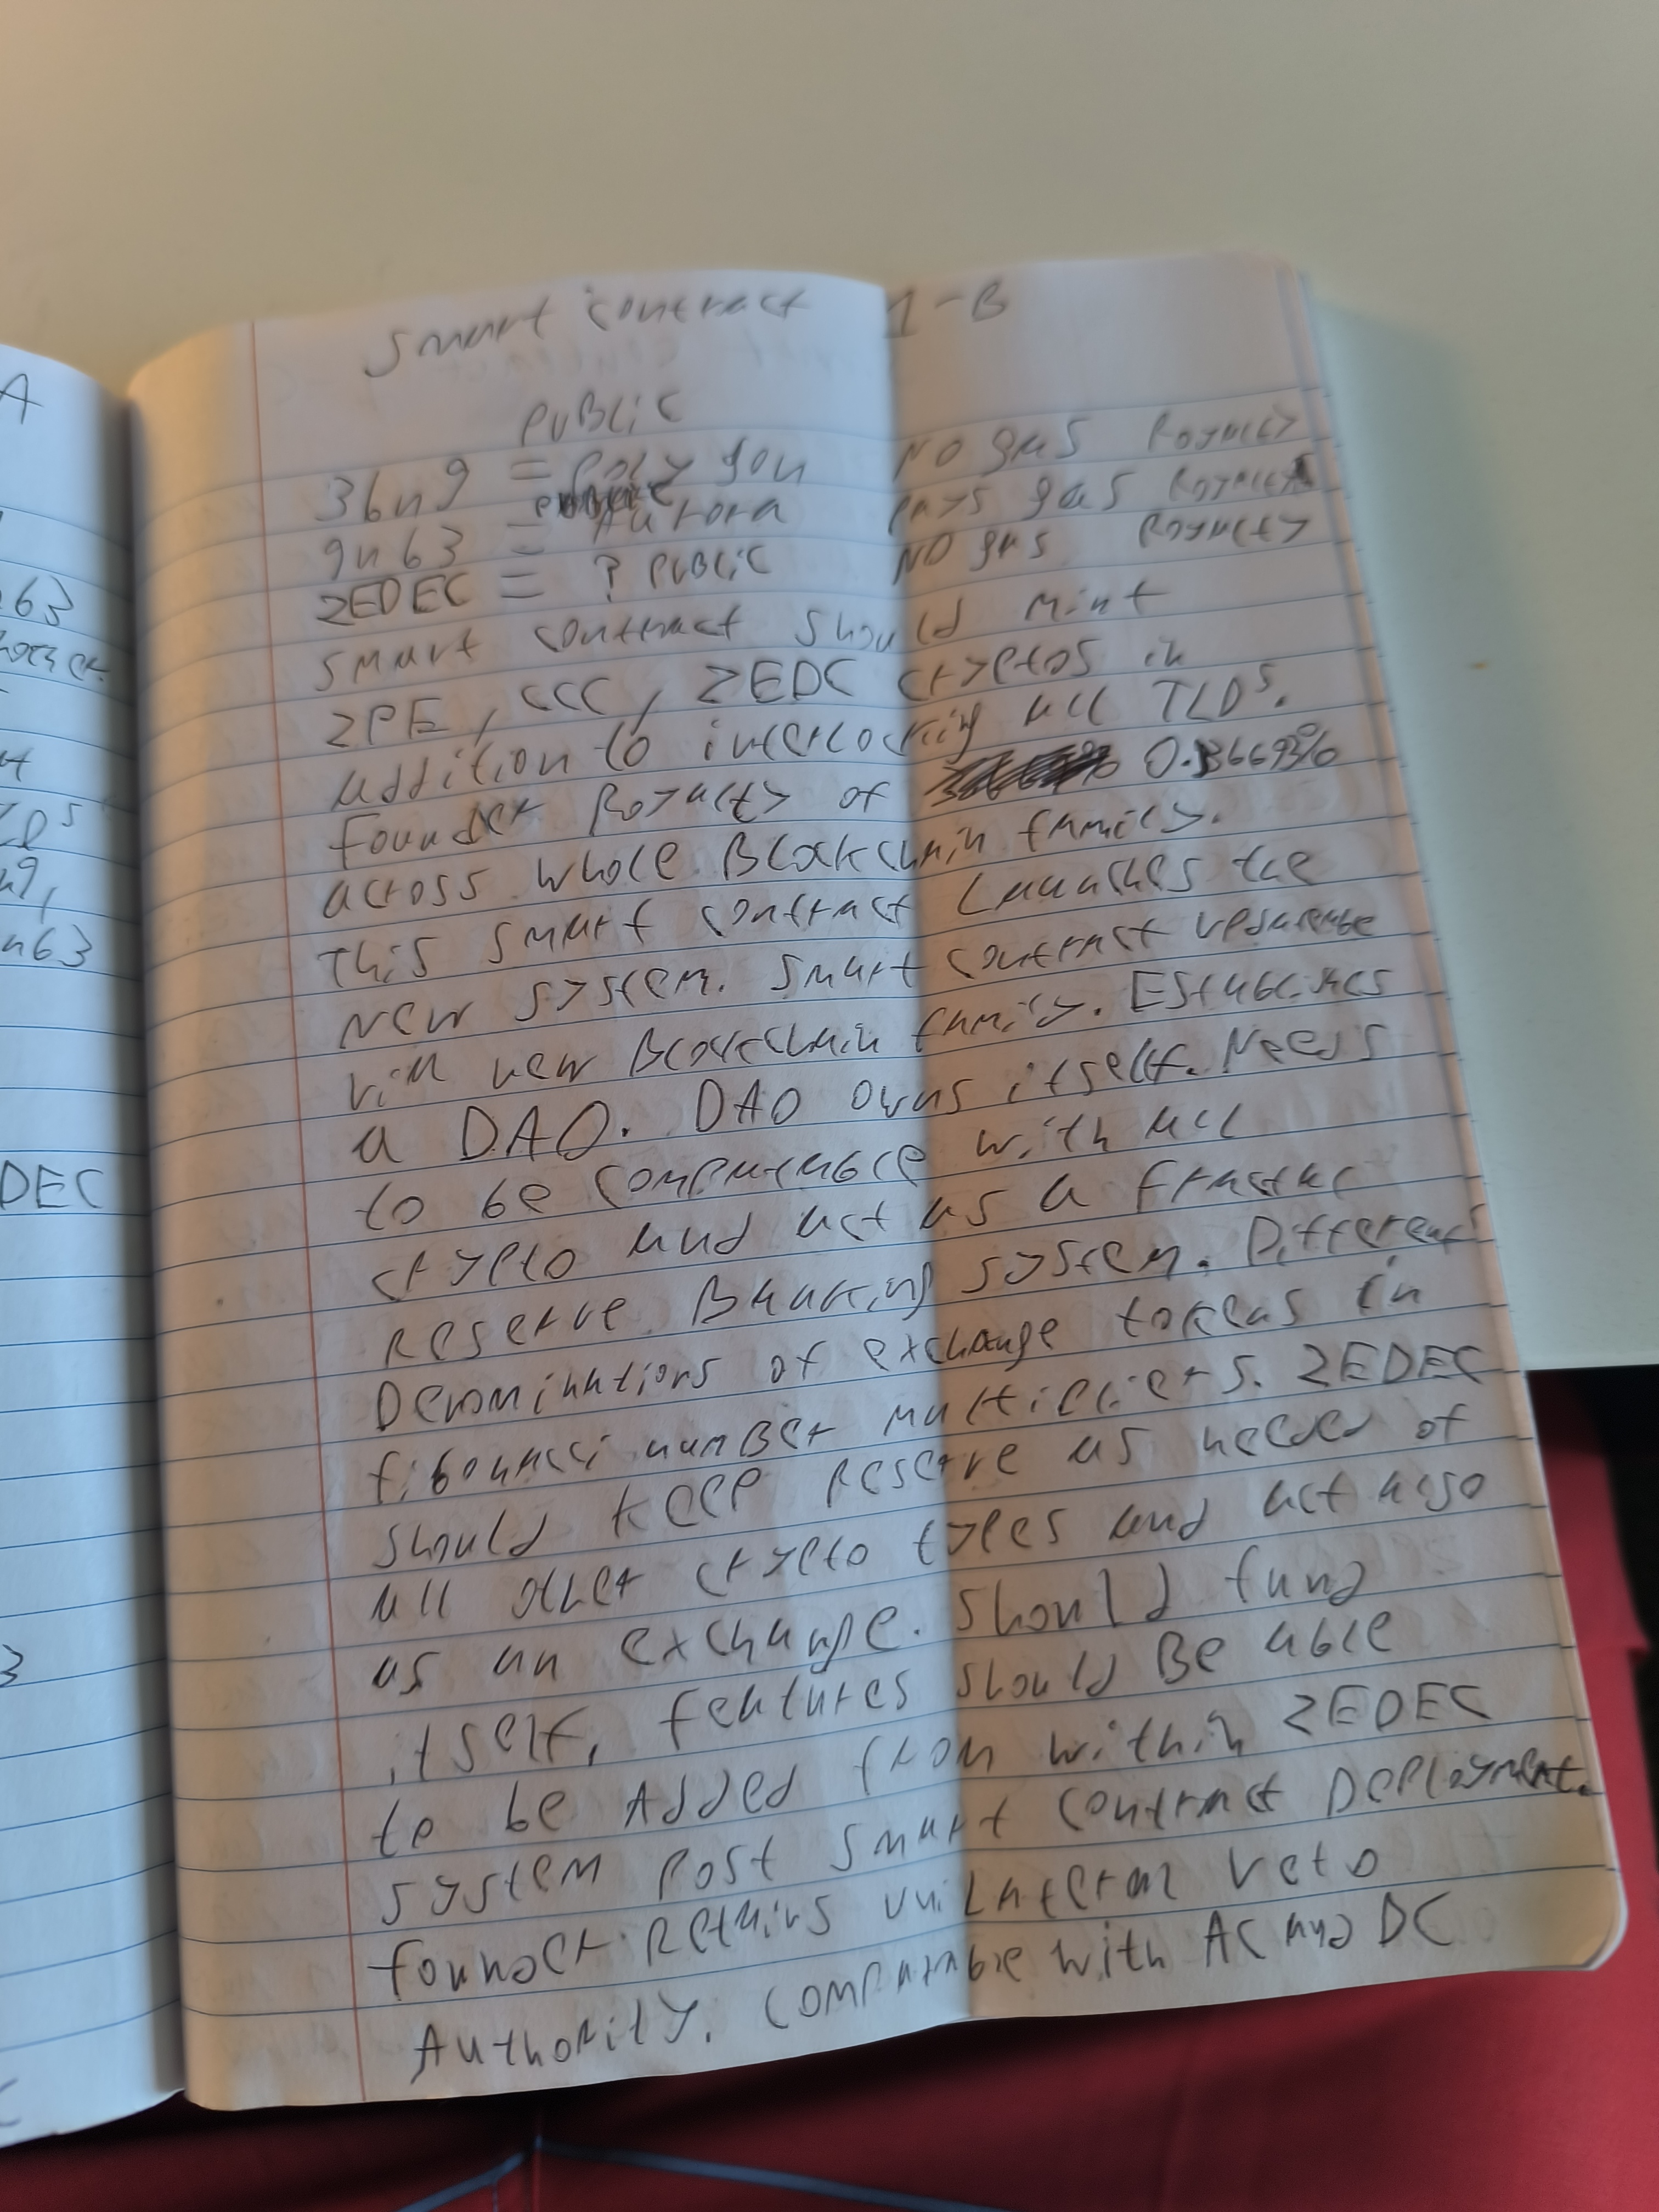 A
63
DEC
n63
3
Smart contract 1-B
PUBLIC
36n9 = Polygon NO gas Royalty
9n63 = Aurora pays gas Royalty
ZEDEC = ? PUBLIC NO gas Royalty
Smart contract should mint
ZPE, CCC, ZEDC cryptos in
addition to interlocking all TLDs.
Founder Royalty of
across whole Blockchain family.
This smart contract Launches the
New system. Smart contract
via new Blockchain family. Establishes
a DAO. DAO owns itself. Needs
to be compatable with all
crypto and act as a fractal
reserve Banking system. Different
Denominations of exchange tokens in
fibonacci number multipliers. ZEDEC
should keep reserve as needed of
all other crypto types and act also
as an exchange. Should fund
itself, features should Be able
to be Added from within ZEDEC
system post smart contract Deployment.
founder Retains unilateral veto
Authority. Compatable with AC and DC